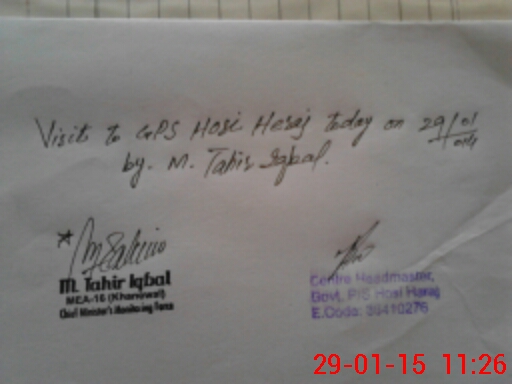 Visit to GPS Hosi Heraj today on 29/01
by. M. Tahir Iqbal.
M. Tahir Iqbal
MEA-16 (Khanewal)
Chief Minister's Monitoring Force
Centre Headmaster,
Govt. P/S Hosi Haraj
E.Code: 38410276
29-01-15 11:26